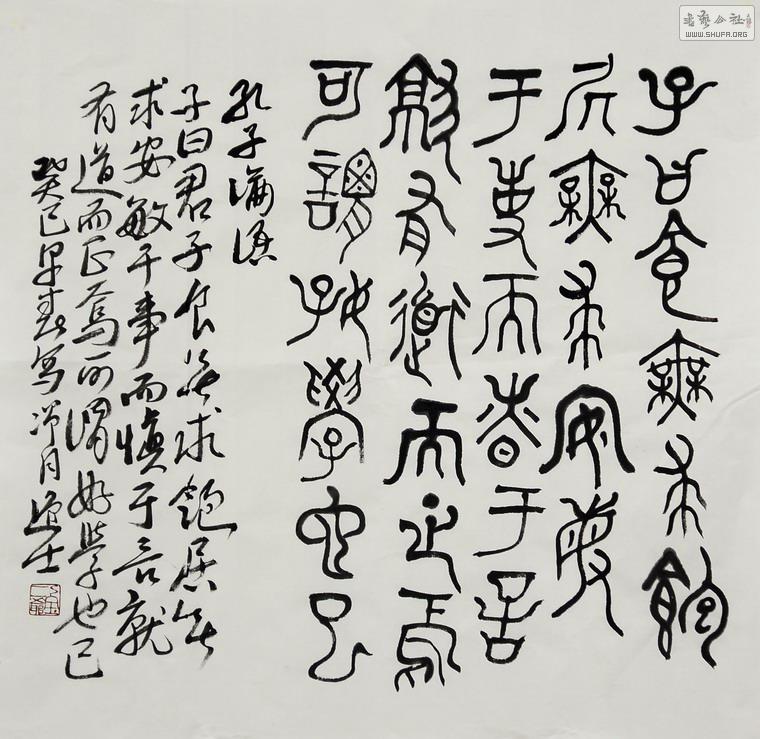 子曰食無求飽
凥無求安敏
于事而昚于言
就有道而正焉
可謂好學也已
孔子誨語
子曰君子食無求飽居無
求安敏于事而慎于言就
有道而正焉可謂好學也已
癸巳早春寫淨月士
書艺公社
WWW.SHUFA.ORG